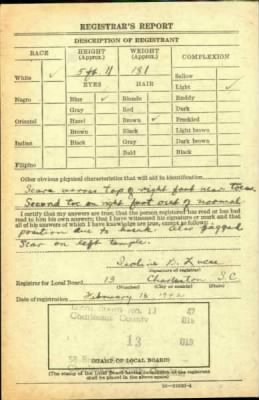 REGISTRAR'S REPORT
DESCRIPTION OF REGISTRANT
RACE HEIGHT (Approx.) WEIGHT (Approx.) COMPLEXION
White ✓ 5 ft 11 181 Sallow
EYES HAIR Light ✓
Negro Blue ✓ Blonde Ruddy
Gray Red Dark
Oriental Hazel Brown ✓ Freckled
Brown Black Light brown
Indian Black Gray Dark brown
Bald Black
Filipino
Other obvious physical characteristics that will aid in identification
Scars across top of right foot near toes.
Second toe on right foot out of normal
I certify that my answers are true; that the person registered has read or has had
read to him his own answers; that I have witnessed his signature or mark and that
all of his answers of which I have knowledge are true, except as follows:
position due to break. Also jagged
scar on left temple.
Lucas
(Signature of registrar)
Registrar for Local Board 13 Charleston S.C
(Number) (City or county) (State)
Date of registration February 16 1942
Local Board No. 13 47
Charleston County 019
13 013
(STAMP OF LOCAL BOARD)
(The stamp of the Local Board having jurisdiction of the registrant
shall be placed in the above space.)